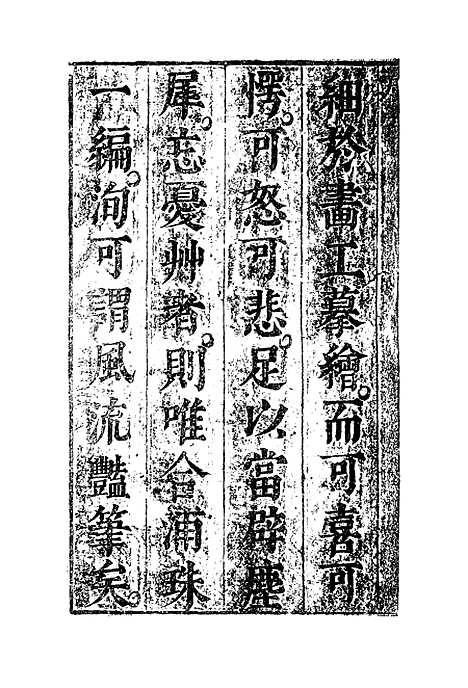 細於畫工摹繪。而可喜可
愕。可怒可悲。足以當辟塵
犀。忘憂艸者。則唯合浦珠
一編。洵可謂風流豔筆矣。